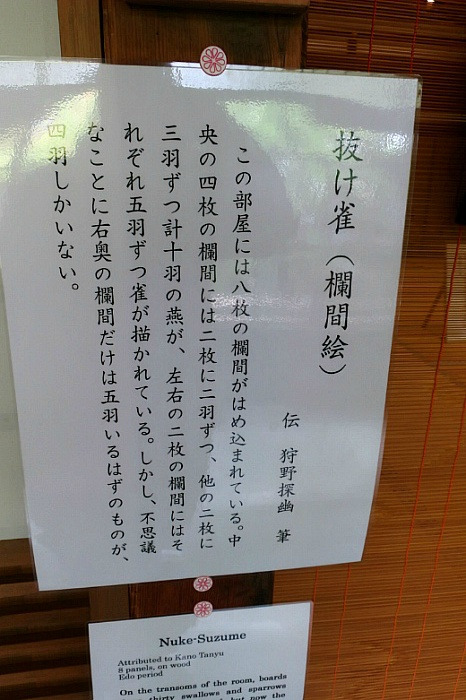 抜け雀（欄間絵）
伝 狩野探幽 筆
この部屋には八枚の欄間がはめ込まれている。中
央の四枚の欄間には二枚に二羽ずつ、他の二枚に
三羽ずつ計十羽の燕が、左右の二枚の欄間にはそ
れぞれ五羽ずつ雀が描かれている。しかし、不思議
なことに右奥の欄間だけは五羽いるはずのものが、
四羽しかいない。
Nuke-Suzume
Attributed to Kano Tanyu
8 panels, on wood
Edo period
On the transoms of the room, boards
thirty swallows and sparrows
but now the